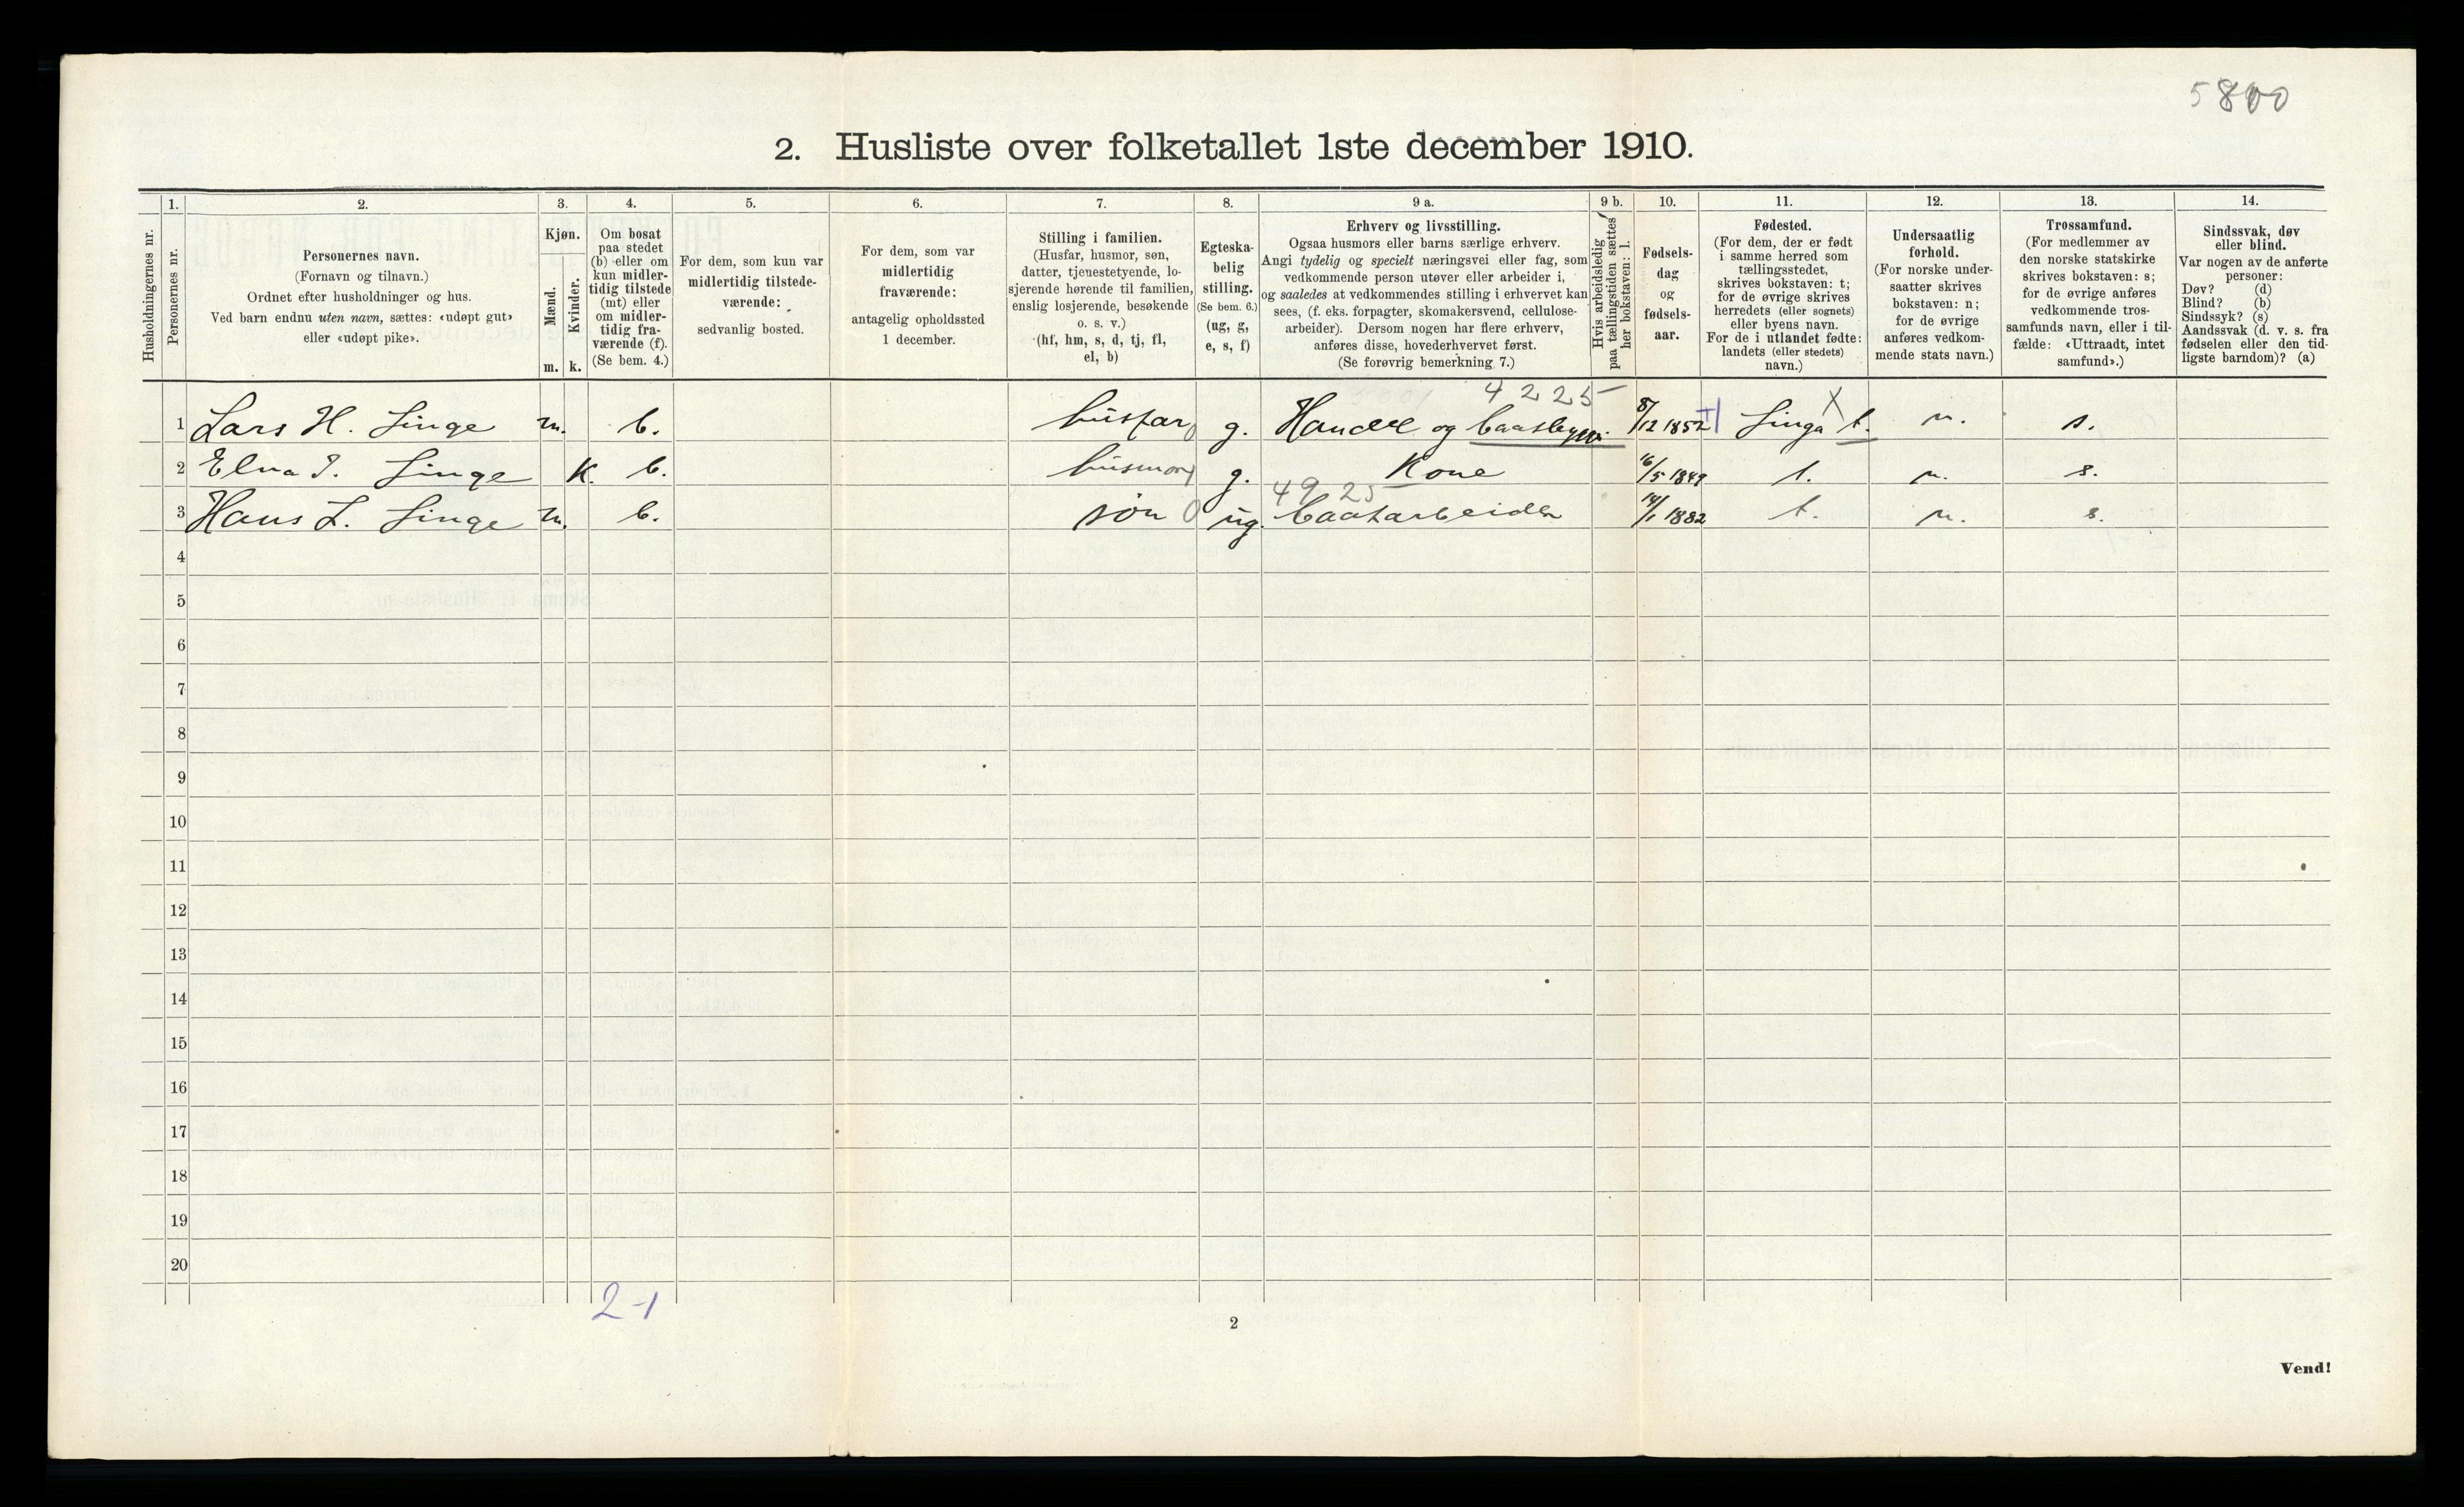 5800
2. Husliste over folketallet 1ste december 1910.
Husholdningernes nr.
1.
Personernes nr.
2.
Personernes navn.
(Fornavn og tilnavn.)
Ordnet efter husholdninger og hus.
Ved barn endnu uten navn, sættes: «udøpt gut»
eller «udøpt pike».
3.
Kjøn.
Mænd.
Kvinder.
m. k.
4.
Om bosat
paa stedet
(b) eller om
kun midler-
tidig tilstede
(mt) eller
om midler-
tidig fra-
værende (f).
(Se bem. 4.)
5.
For dem, som kun var
midlertidig tilstede-
værende:
sedvanlig bosted.
6.
For dem, som var
midlertidig
fraværende:
antagelig opholdssted
1 december.
7.
Stilling i familien.
(Husfar, husmor, søn,
datter, tjenestetyende, lo-
sjerende hørende til familien,
enslig losjerende, besøkende
o. s. v.)
(hf, hm, s, d, tj, fl,
el, b)
8.
Egteska-
belig
stilling.
(Se bem. 6.)
(ug, g,
e, s, f)
9 a.
Erhverv og livsstilling.
Ogsaa husmors eller barns særlige erhverv.
Angi tydelig og specielt næringsvei eller fag, som
vedkommende person utøver eller arbeider i,
og saaledes at vedkommendes stilling i erhvervet kan
sees, (f. eks. forpagter, skomakersvend, cellulose-
arbeider). Dersom nogen har flere erhverv,
anføres disse, hovederhvervet først.
(Se forøvrig bemerkning 7.)
9 b.
Hvis arbeidsledig
paa tællingstiden sættes
her bokstaven: l.
10.
Fødsels-
dag
og
fødsels-
aar.
11.
Fødested.
(For dem, der er født
i samme herred som
tællingsstedet,
skrives bokstaven: t;
for de øvrige skrives
herredets (eller sognets)
eller byens navn.
For de i utlandet fødte:
landets (eller stedets)
navn.)
12.
Undersaatlig
forhold.
(For norske under-
saatter skrives
bokstaven: n;
for de øvrige
anføres vedkom-
mende stats navn.)
13.
Trossamfund.
(For medlemmer av
den norske statskirke
skrives bokstaven: s;
for de øvrige anføres
vedkommende tros-
samfunds navn, eller i til-
fælde: «Uttraadt, intet
samfund».)
14.
Sindssvak, døv
eller blind.
Var nogen av de anførte
personer:
Døv? (d)
Blind? (b)
Sindssyk? (s)
Aandssvak (d. v. s. fra
fødselen eller den tid-
ligste barndom)? (a)
4225
1 Lars H. Linge m. b. husfar g. Handel og baatbygn. 8/12 1852 Linge t. n. s.
2 Elna I. Linge K. b. husmor g. Kone 16/5 1849 t. n. s.
4925
3 Hans L. Linge m. b. søn 0 ug. baatarbeider 14/1 1882 t. n. s.
4
5
6
7
8
9
10
11
12
13
14
15
16
17
18
19
20
2-1
2
Vend!